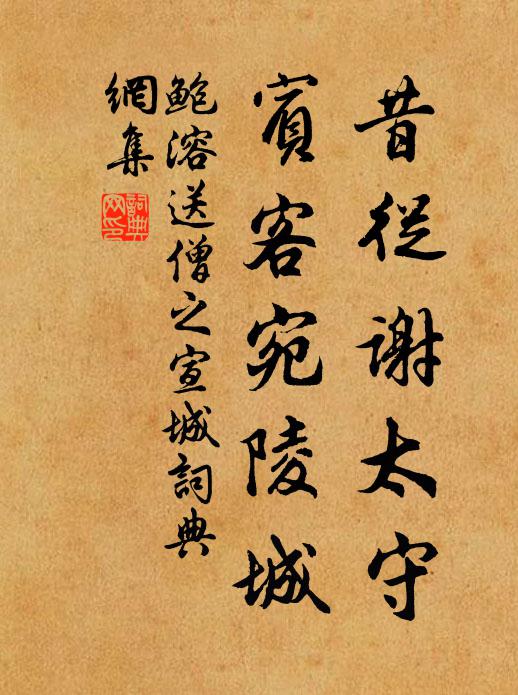 昔從謝太守
賓客宛陵城
鮑溶送僧之宣城詞典
網集
詞典
网印